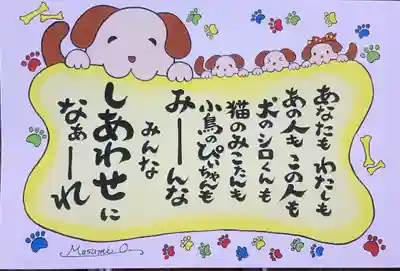 あなたも わたしも
あの人も この人も
犬のシロくんも
猫のみこたんも
小鳥のぴぃちゃんも
みーーんな
みんな
しあわせに
なぁーーれ
Masumi O.